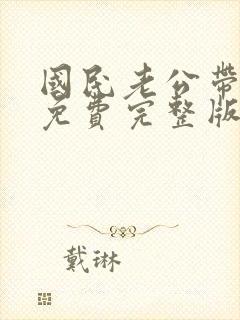 國民老公帶
免費完整版
戴琳